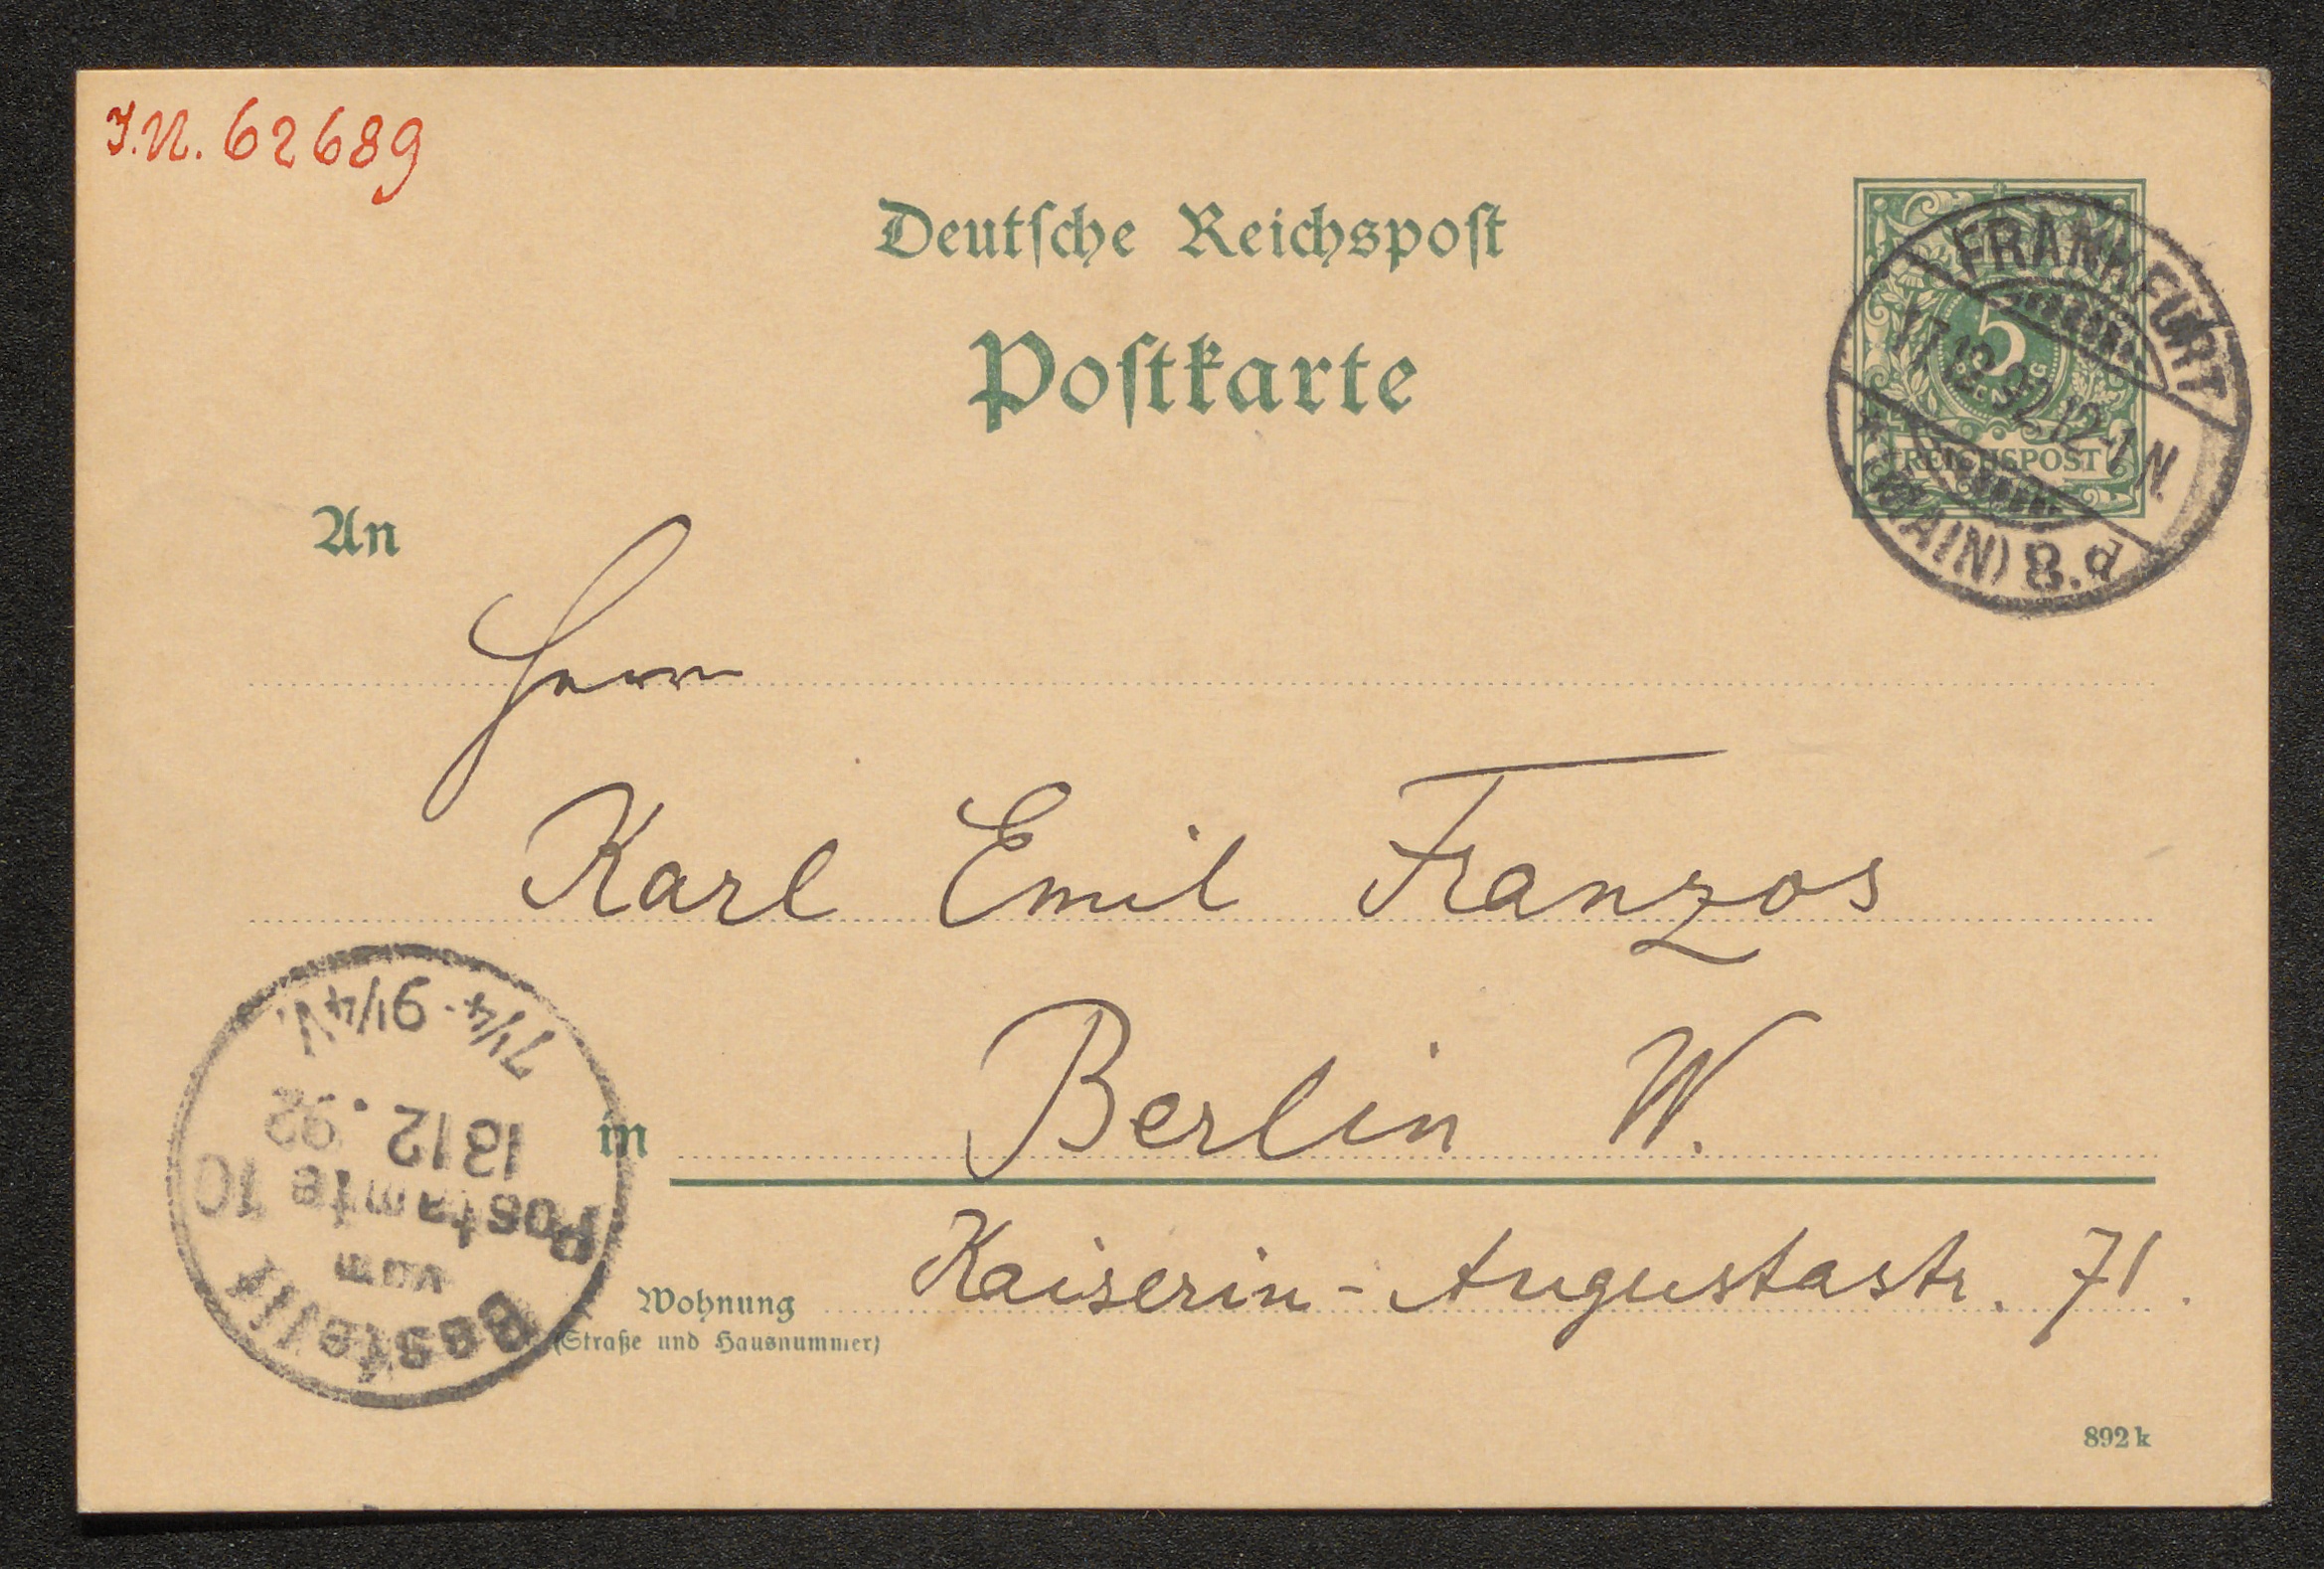 I.N. 62689
Deutsche Reichspost
Postkarte
FRANKFURT
12.92.12-1 N.
(MAIN) 8.d
5
REICHSPOST
An
Herrn
Karl Emil Franzos
in Berlin W.
Wohnung Kaiserin-Augustastr. 71.
(Straße und Hausnummer)
Bestellt
vom
Postamte 10
1312.92
7¼-9¼V.
892 k